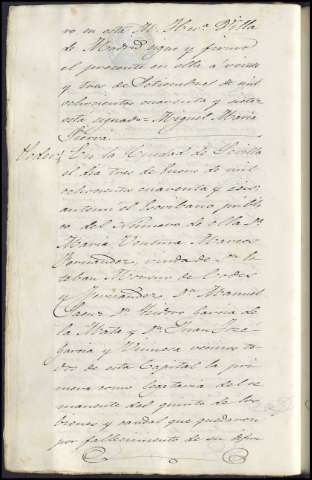 ro en esta M. Her.ª Villa
de Madrid signo y firmo
el presente en ella a veinte
y tres de Setiembre de mil
ochocientos cuarenta y siete
esta signado = Miguel Maria
Sierra
En la Ciudad de Sevilla
el dia tres de Enero de mil
ochocientos cuarenta y seis
antemi el Escribano publi
co del Numero de ella D.ª
Maria Ventura Marcos
Fernandez, viuda de D.n
y Fernandez D.n Manuel
Saenz D.n Isidro Garcia de
la Mata y D.n Juan José
Garcia y Vinuera vecinos to
dos de esta Capital la pri
mera como legataria del re
manente del quinto de los
bienes y caudal que quedaron
por fallecimiento de su difun